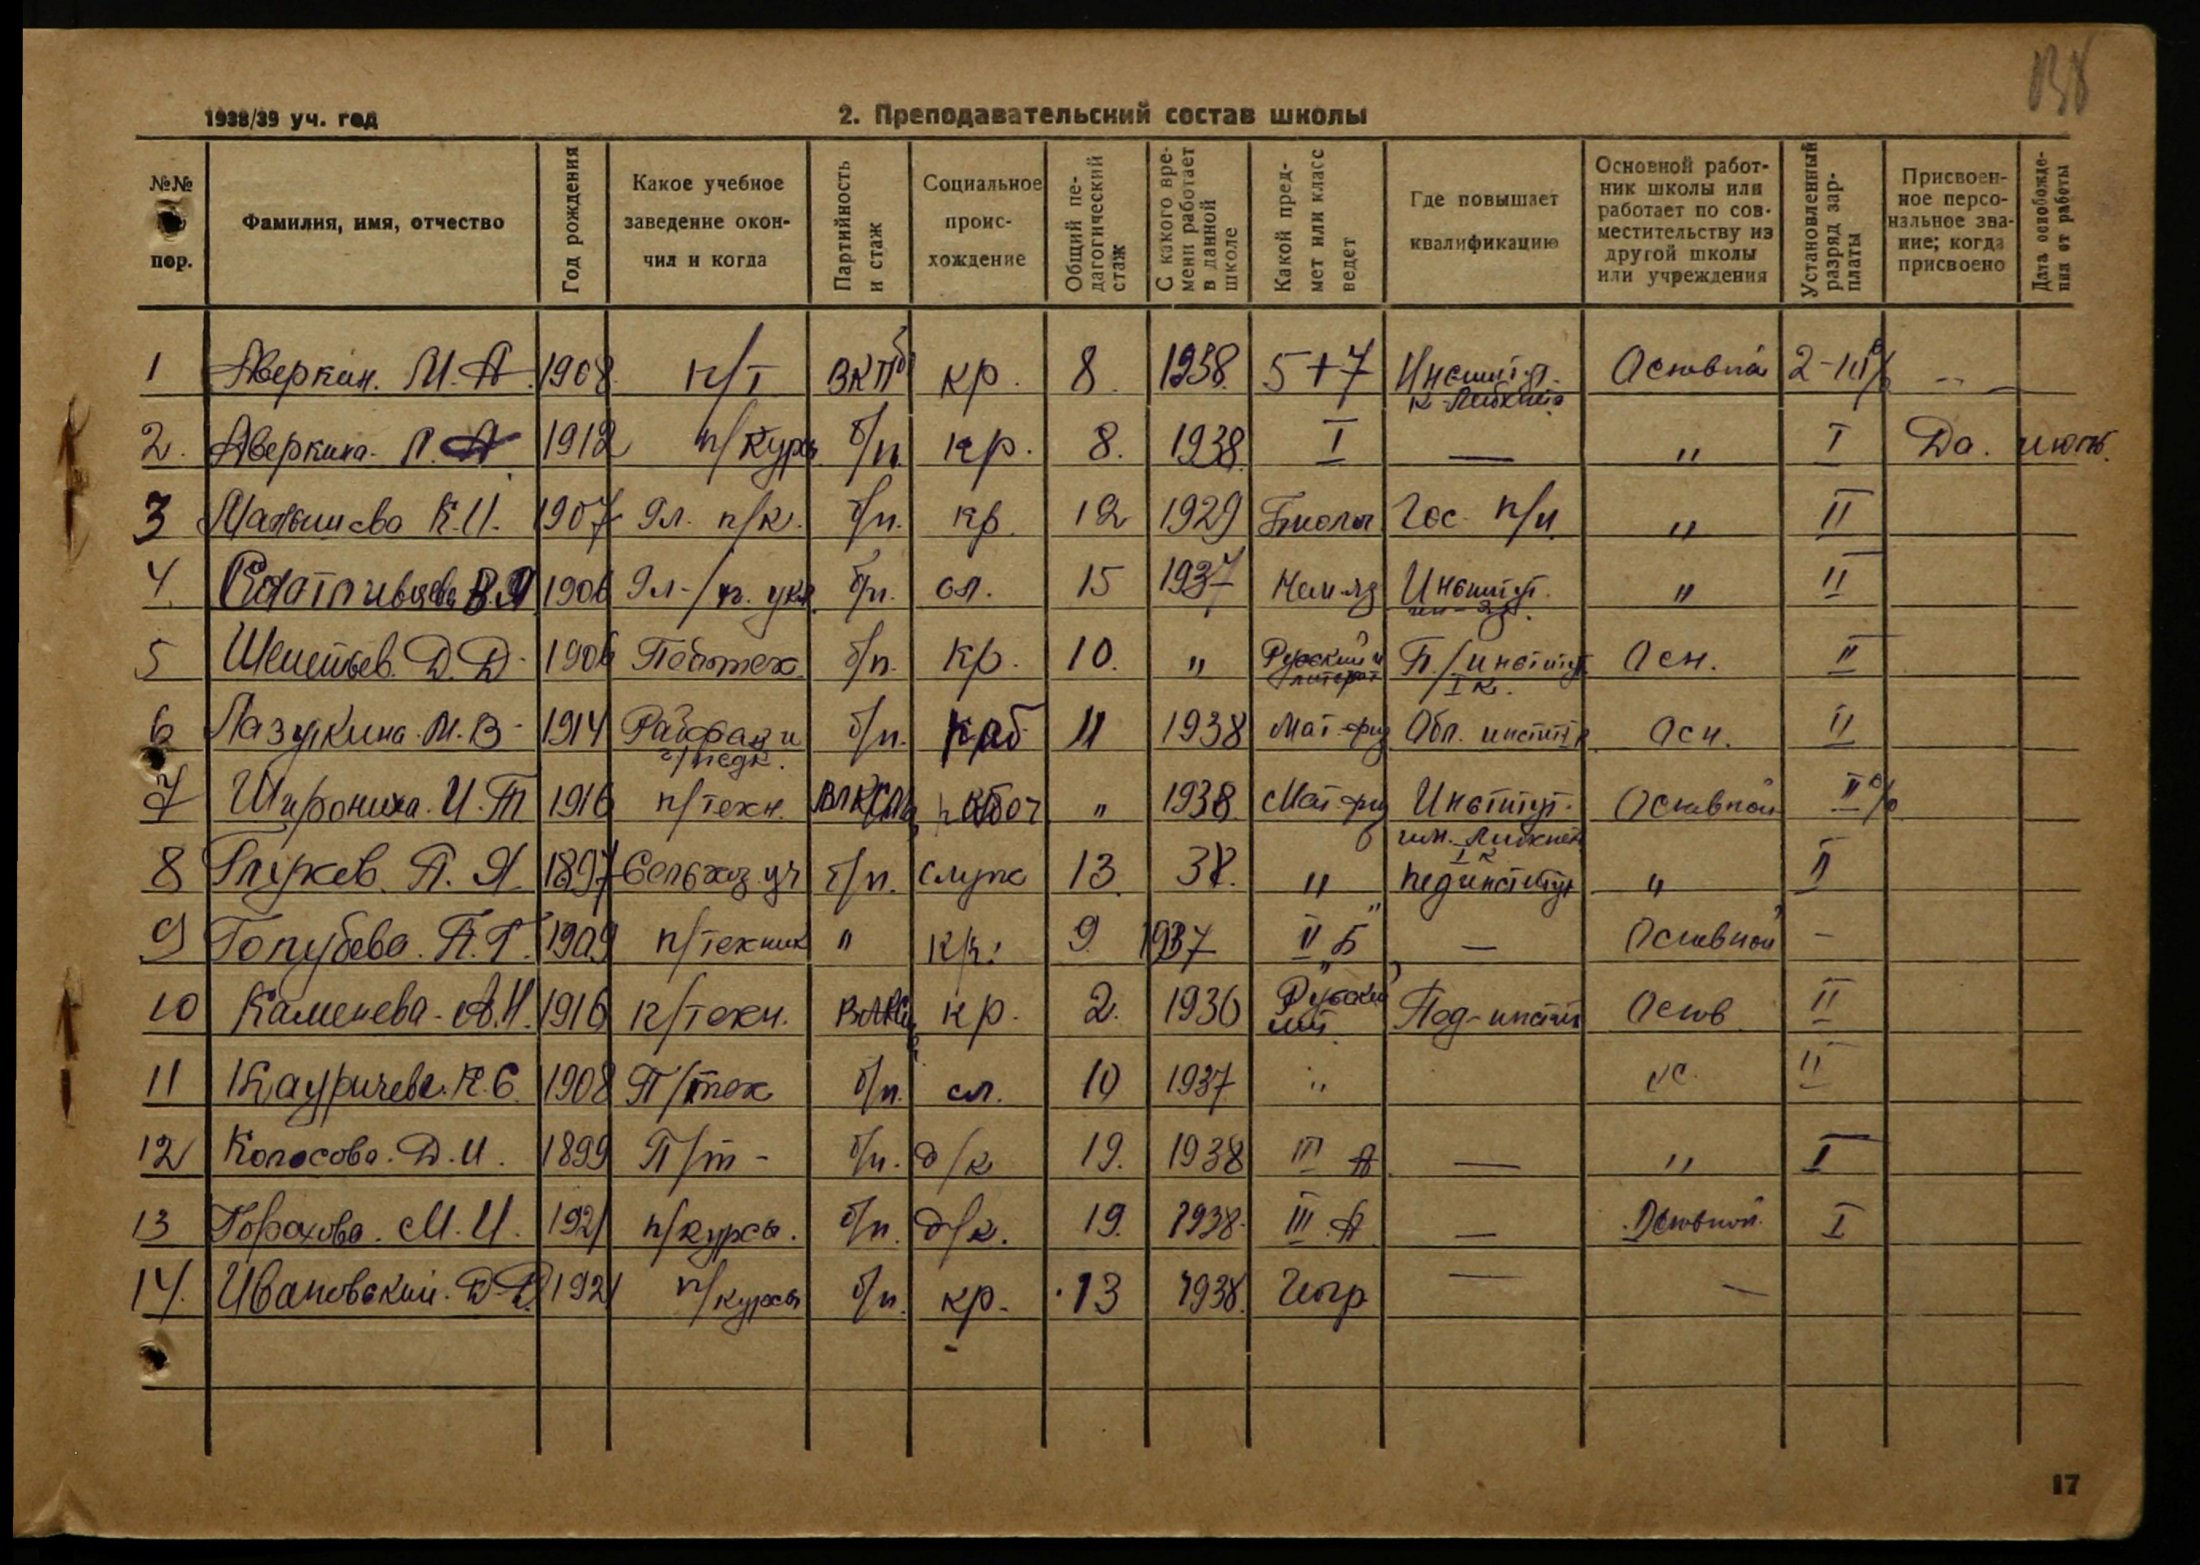 138
1938/39 уч. год
2. Преподавательский состав школы
№№ пор.
Фамилия, имя, отчество
Год рождения
Какое учебное заведение окон-
чил и когда
Партийность и стаж
Социальное проис-
хождение
Общий пе-
дагогический стаж
С какого вре-
мени работает в данной школе
Какой пред-
мет или класс ведет
Где повышает квалификацию
Основной работ-
ник школы или работает по сов-
местительству из другой школы или учреждения
Установленный разряд зар-
платы
Присвоен-
ное персо-
нальное зва-
ние; когда присвоено
Дата освобожде-
ния от работы
1 Аверкин. М. А. 1908 п/т ВКПб кр. 8. 1938. 5+7 Институт. Основной
2. Аверкина. А 1912 п/курсы б/п. кр. 8. 1938. I — " I Да. июль.
3 К.И. 1907 9л. п/к. б/п. кр. 12 1929 Гос. п/и. " II
4 1906 9л. б/п. сл. 15 1937 Нем. яз Институт. " II
5 Д. Д. 1906 б/п. кр. 10. " Русский и литерат П./институт I к. Осн. II
6 Лазукина. М. В. 1914 Рабфак и б/п. раб 11 1938 Мат. физ Обл. институт Осн. II
7 И. Т 1916 п/техн. ВЛКСМ рабоч " 1938. Мат. физ Институт. Основной II
8 П. Я. 1897 Сельхоз. уч б/п. служ 13. 38. " пединститут " II
9 Голубева. 1909 п/техник " кр. 9. 1937 II "Б" — Основной —
10 Каменева. А. Н. 1916 п/техн. ВЛКСМ кр. 2. 1936 Русский лит. Пед-инстит Основ II
11 К. С. 1908 П/тех б/п. сл. 10 1937 " II
12 Колосова. Д. И. 1899 П/т- б/п. д/к 19. 1938 III А — " I
13 Горохова. М. И. 1921 п/курсы. б/п. д/к. 19. 1938. III А — Основной I
14. Ивановский. Д. 1921 п/курсы б/п. кр. 13 1938. — —
17